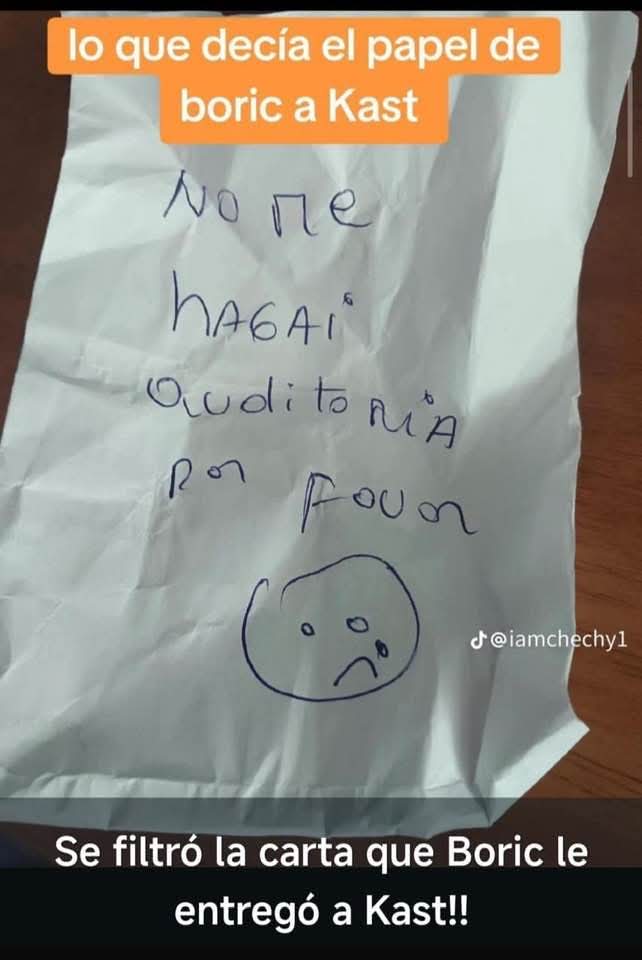 lo que decía el papel de
boric a Kast
No me
hAGAi
auditoRiA
por
Favor
@iamchechy1
Se filtró la carta que Boric le
entregó a Kast!!